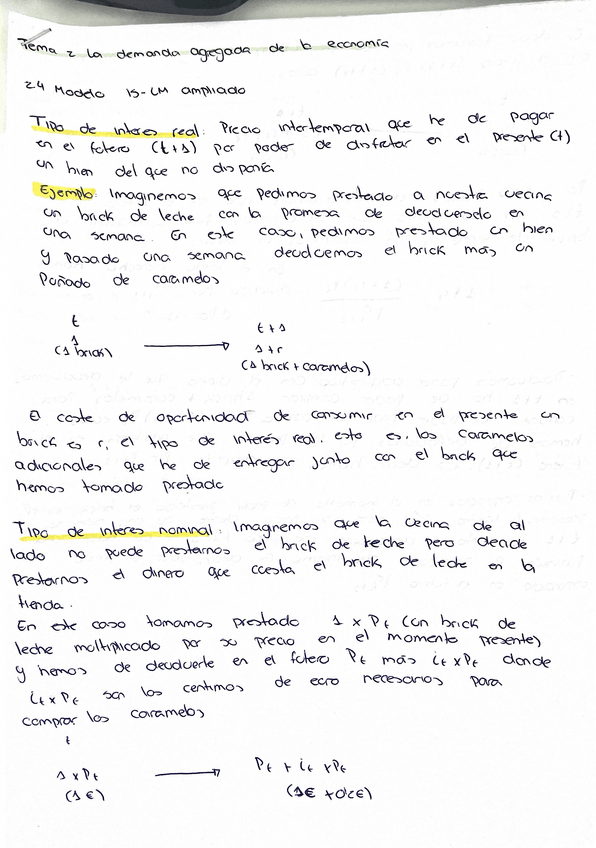 Tema 2 La demanda agregada de la economía
2.4 Modelo IS-LM ampliado
Tipo de interes real: Precio intertemporal que he de pagar
en el futuro (t+1) por poder de disfrutar en el presente (t)
un bien del que no disponía
Ejemplo: Imaginemos que pedimos prestado a nuestra vecina
un brick de leche con la promesa de devolverselo en
una semana. En este caso, pedimos prestado un bien
y pasado una semana devolvemos el brick más un
Puñado de caramelos
t
t+1
1
1+r
(1 brick)
(1 brick + caramelos)
El coste de oportunidad de consumir en el presente un
brick es r, el tipo de interés real, esto es, los caramelos
adicionales que he de entregar junto con el brick que
hemos tomado prestado
Tipo de interes nominal: Imaginemos que la vecina de al
lado no puede prestarnos el brick de leche pero decide
Prestarnos el dinero que cuesta el brick de leche en la
tienda.
En este caso tomamos prestado 1 x Pt (un brick de
leche multiplicado por su precio en el momento presente)
y hemos de devolverle en el futuro Pt más it x Pt donde
it x Pt son los centimos de euro necesarios para
comprar los caramelos
t
1 x Pt
Pt + it x Pt
(1€)
(1€ + 0'2€)